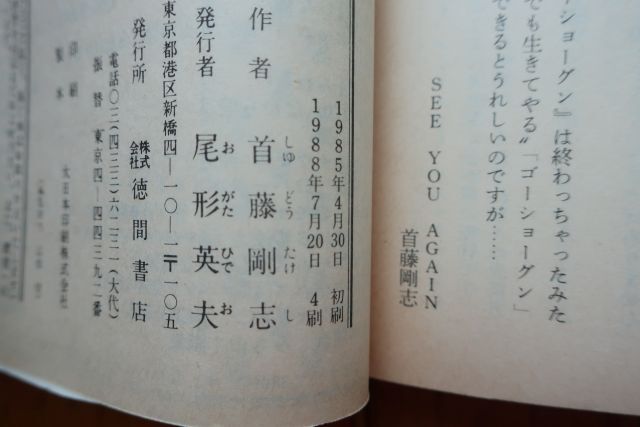 ーショーグン』は終わっちゃったみた
でも生きてやる〟「ゴーショーグン」
できるとうれしいのですが……
SEE YOU AGAIN
首藤剛志
1985年4月30日 初刷
1988年7月20日 4刷
作者 首藤剛志
しゅ どう たけ し
発行者 尾形英夫
お がた ひで お
東京都港区新橋四―一〇―一〒一〇五
発行所 株式会社 徳間書店
電話〇三(四三三)六二三一(大代)
振替 東京四―四四三九二番
印刷
製本 大日本印刷株式会社